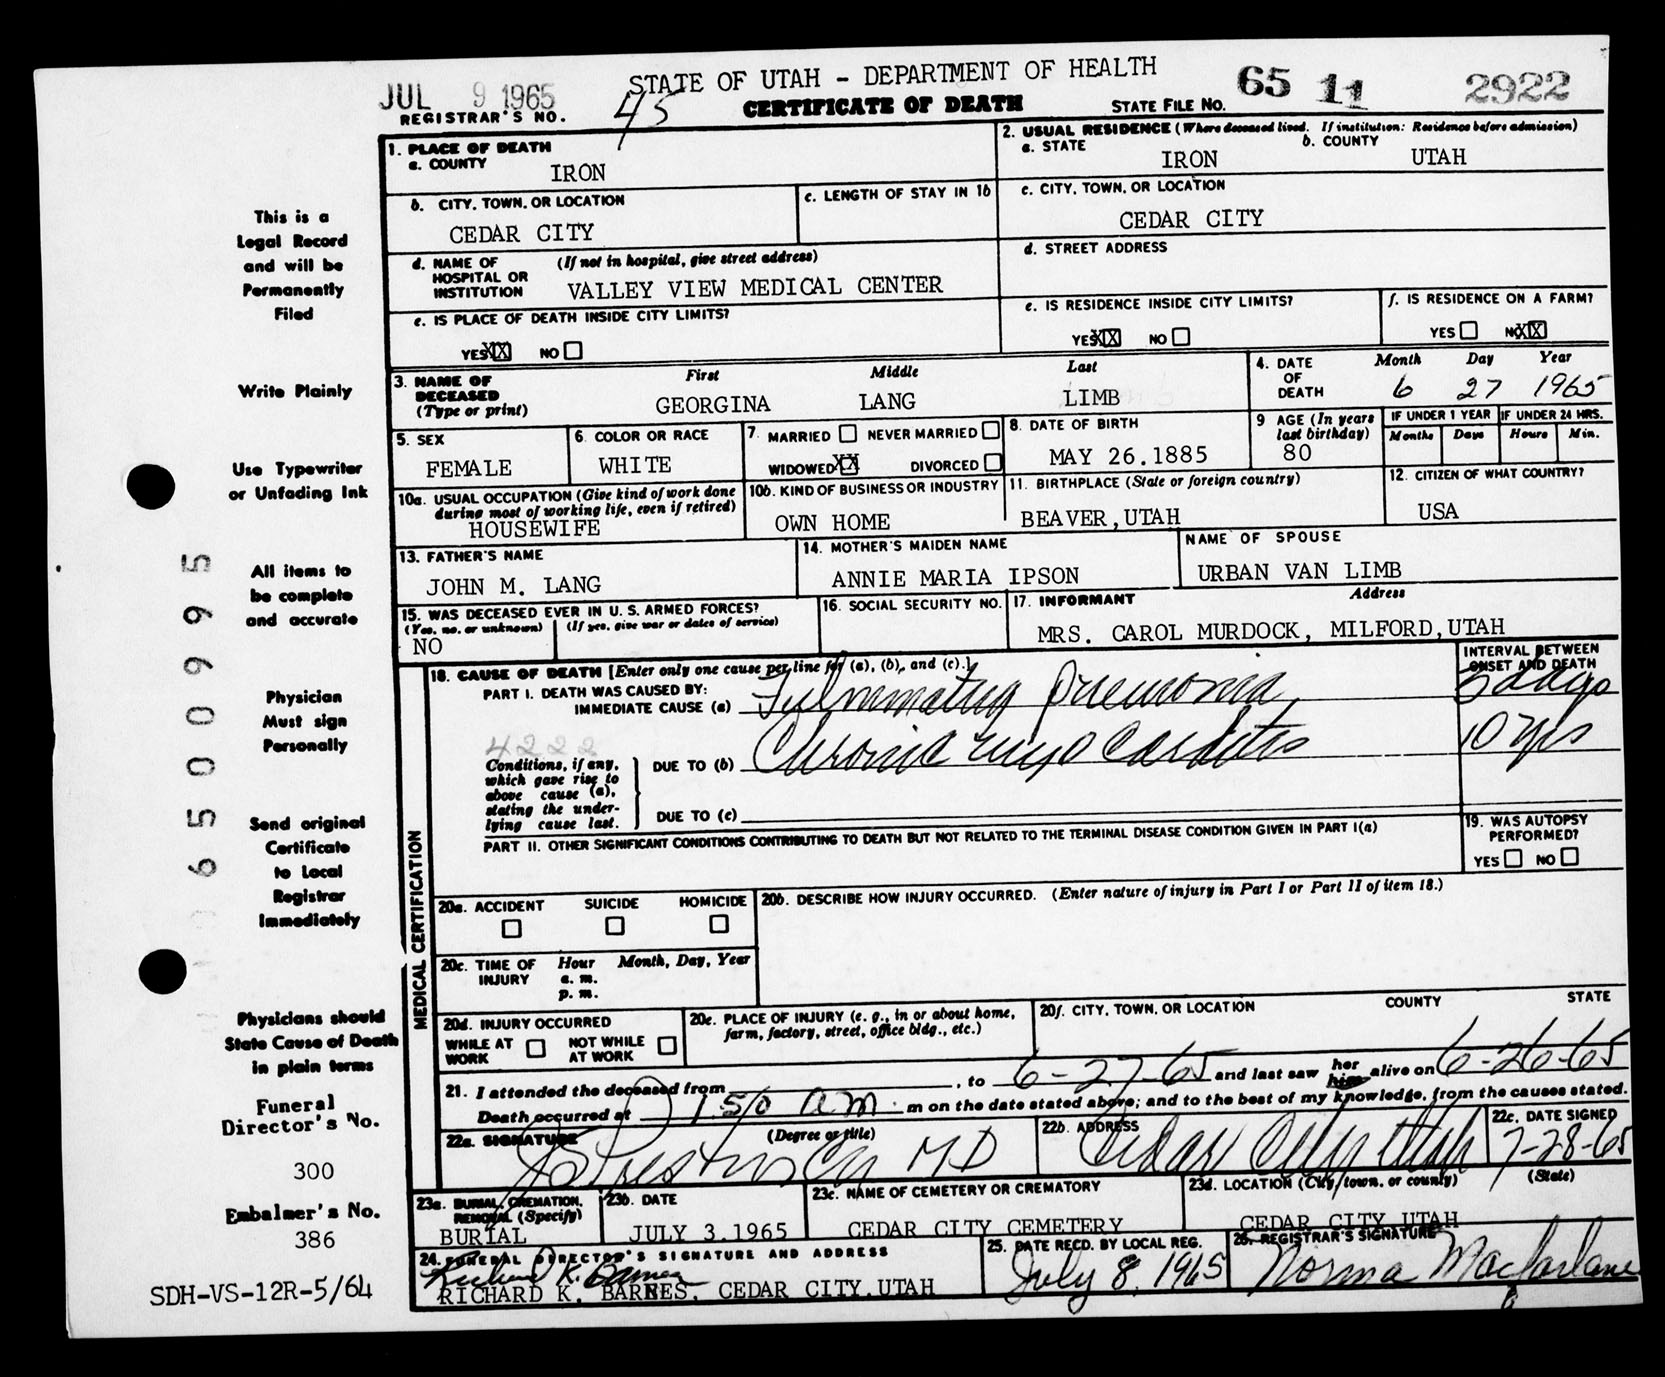 JUL 9 1965
STATE OF UTAH - DEPARTMENT OF HEALTH
65 11 2922
REGISTRAR'S NO. 45
CERTIFICATE OF DEATH
STATE FILE NO.
1. PLACE OF DEATH
a. COUNTY
IRON
2. USUAL RESIDENCE (Where deceased lived. If institution: Residence before admission)
a. STATE
IRON
b. COUNTY
UTAH
b. CITY, TOWN, OR LOCATION
CEDAR CITY
c. LENGTH OF STAY IN 1b
c. CITY, TOWN, OR LOCATION
CEDAR CITY
d. NAME OF HOSPITAL OR INSTITUTION
(If not in hospital, give street address)
VALLEY VIEW MEDICAL CENTER
d. STREET ADDRESS
e. IS PLACE OF DEATH INSIDE CITY LIMITS?
YES XX NO
e. IS RESIDENCE INSIDE CITY LIMITS?
YES XX NO
f. IS RESIDENCE ON A FARM?
YES NO XX
3. NAME OF DECEASED (Type or print)
First Middle Last
GEORGINA LANG LIMB
4. DATE OF DEATH
Month Day Year
6 27 1965
5. SEX
FEMALE
6. COLOR OR RACE
WHITE
7. MARRIED NEVER MARRIED
WIDOWED XX DIVORCED
8. DATE OF BIRTH
MAY 26.1885
9 AGE (In years last birthday)
80
IF UNDER 1 YEAR
Months Days
IF UNDER 24 HRS.
Hours Min.
10a. USUAL OCCUPATION (Give kind of work done during most of working life, even if retired)
HOUSEWIFE
10b. KIND OF BUSINESS OR INDUSTRY
OWN HOME
11. BIRTHPLACE (State or foreign country)
BEAVER,UTAH
12. CITIZEN OF WHAT COUNTRY?
USA
13. FATHER'S NAME
JOHN M. LANG
14. MOTHER'S MAIDEN NAME
ANNIE MARIA IPSON
NAME OF SPOUSE
URBAN VAN LIMB
15. WAS DECEASED EVER IN U. S. ARMED FORCES?
(Yes, no, or unknown) (If yes, give war or dates of service)
NO
16. SOCIAL SECURITY NO.
17. INFORMANT Address
MRS. CAROL MURDOCK, MILFORD,UTAH
18. CAUSE OF DEATH [Enter only one cause per line for (a), (b), and (c).]
INTERVAL BETWEEN ONSET AND DEATH
PART I. DEATH WAS CAUSED BY:
IMMEDIATE CAUSE (a) Fulminating pneumonia
days
4222
Conditions, if any, which gave rise to above cause (a), stating the underlying cause last.
DUE TO (b) Chronic myocarditis
10 yrs
DUE TO (c)
PART II. OTHER SIGNIFICANT CONDITIONS CONTRIBUTING TO DEATH BUT NOT RELATED TO THE TERMINAL DISEASE CONDITION GIVEN IN PART I(a)
19. WAS AUTOPSY PERFORMED?
YES NO
MEDICAL CERTIFICATION
20a. ACCIDENT SUICIDE HOMICIDE
20b. DESCRIBE HOW INJURY OCCURRED. (Enter nature of injury in Part I or Part II of item 18.)
20c. TIME OF INJURY
Hour Month, Day, Year
a. m.
p. m.
20d. INJURY OCCURRED
WHILE AT WORK NOT WHILE AT WORK
20e. PLACE OF INJURY (e. g., in or about home, farm, factory, street, office bldg., etc.)
20f. CITY, TOWN, OR LOCATION COUNTY STATE
21. I attended the deceased from , to 6-27-65 and last saw her him alive on 6-26-65
Death occurred at 150 am m on the date stated above; and to the best of my knowledge, from the causes stated.
22a. SIGNATURE (Degree or title)
MD
22b. ADDRESS
Cedar City Utah
22c. DATE SIGNED
7-28-65
23a. BURIAL, CREMATION, REMOVAL (Specify)
BURIAL
23b. DATE
JULY 3.1965
23c. NAME OF CEMETERY OR CREMATORY
CEDAR CITY CEMETERY
23d. LOCATION (City, town, or county) (State)
CEDAR CITY UTAH
24. FUNERAL DIRECTOR'S SIGNATURE AND ADDRESS
Richard K. Barnes
RICHARD K. BARNES, CEDAR CITY.UTAH
25. DATE RECD. BY LOCAL REG.
July 8, 1965
26. REGISTRAR'S SIGNATURE
Norma Macfarlane
This is a
Legal Record
and will be
Permanently
Filed
Write Plainly
Use Typewriter
or Unfading Ink
All items to
be complete
and accurate
Physician
Must sign
Personally
Send original
Certificate
to Local
Registrar
Immediately
Physicians should
State Cause of Death
in plain terms
Funeral
Director's No.
300
Embalmer's No.
386
SDH-VS-12R-5/64
65 00995